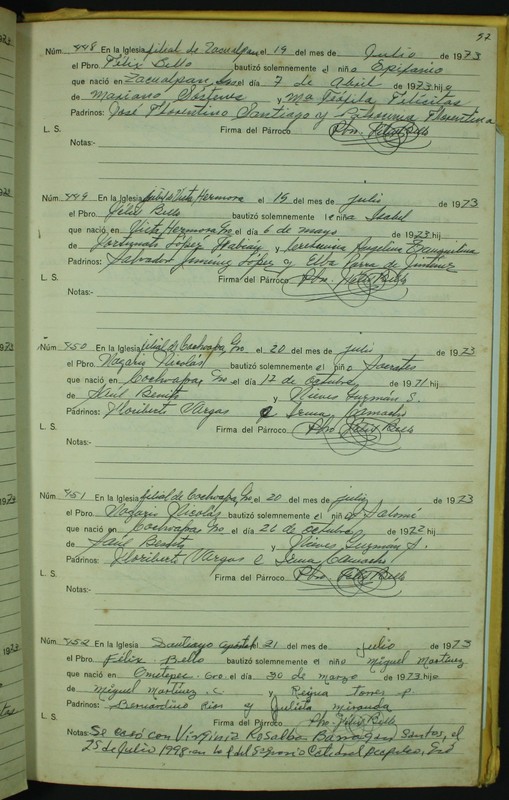 52
Núm. 448 En la Iglesia filial de Zacualpan el 19 del mes de Julio de 1973
el Pbro. Félix Bello bautizó solemnemente el niño Epifanio
que nació en Zacualpan, Gro. el día 7 de Abril de 1973 hijo
de Mariano Sóstenes y Ma Teófila Felícitas
Padrinos: José Florentino Santiago y Florentina
L. S. Firma del Párroco Pbro. Félix Bello
Notas:-
Núm. 449 En la Iglesia Vista Hermosa el 15 del mes de julio de 1973
el Pbro. Félix Bello bautizó solemnemente la niña Isabel
que nació en Vista Hermosa Gro el día 6 de mayo de 1973 hija
de Fortunato López y Angelina
Padrinos: Salvador Jiménez López y Elba Parra de Jiménez
L. S. Firma del Párroco Pbro. Félix Bello
Notas:-
Núm. 450 En la Iglesia filial de Cochoapa, Gro el 20 del mes de julio de 1973
el Pbro. Nazario Nicolás bautizó solemnemente el niño Sócrates
que nació en Cochoapa, Gro el día 12 de octubre de 1971 hij
de Saúl Benito y Nieves Guzmán S.
Padrinos: Floriberto Vargas e Irma Camacho
L. S. Firma del Párroco Pbro Félix Bello
Notas:-
Núm. 451 En la Iglesia filial de Cochoapa, Gro el 20 del mes de julio de 1973
el Pbro. Nazario Nicolás bautizó solemnemente el niño Salomé
que nació en Cochoapa, Gro el día 26 de octubre de 1972 hij
de Saúl Benito y Nieves Guzmán S.
Padrinos: Floriberto Vargas e Irma Camacho
L. S. Firma del Párroco Pbro. Félix Bello
Notas:-
Núm. 452 En la Iglesia Santiago Apóstol el 21 del mes de julio de 1973
el Pbro. Félix Bello bautizó solemnemente el niño Miguel Martínez
que nació en Ometepec Gro. el día 30 de marzo de 1973 hijo
de Miguel Martínez C. y Reyna Torres P.
Padrinos: Bernardino Rios y Julieta Miranda
L. S. Firma del Párroco Pbro. Félix Bello
Notas: Se casó con Virginia Rosalba Barragan Santos, el
25 de Julio 1998 en la Catedral Acapulco, Gro